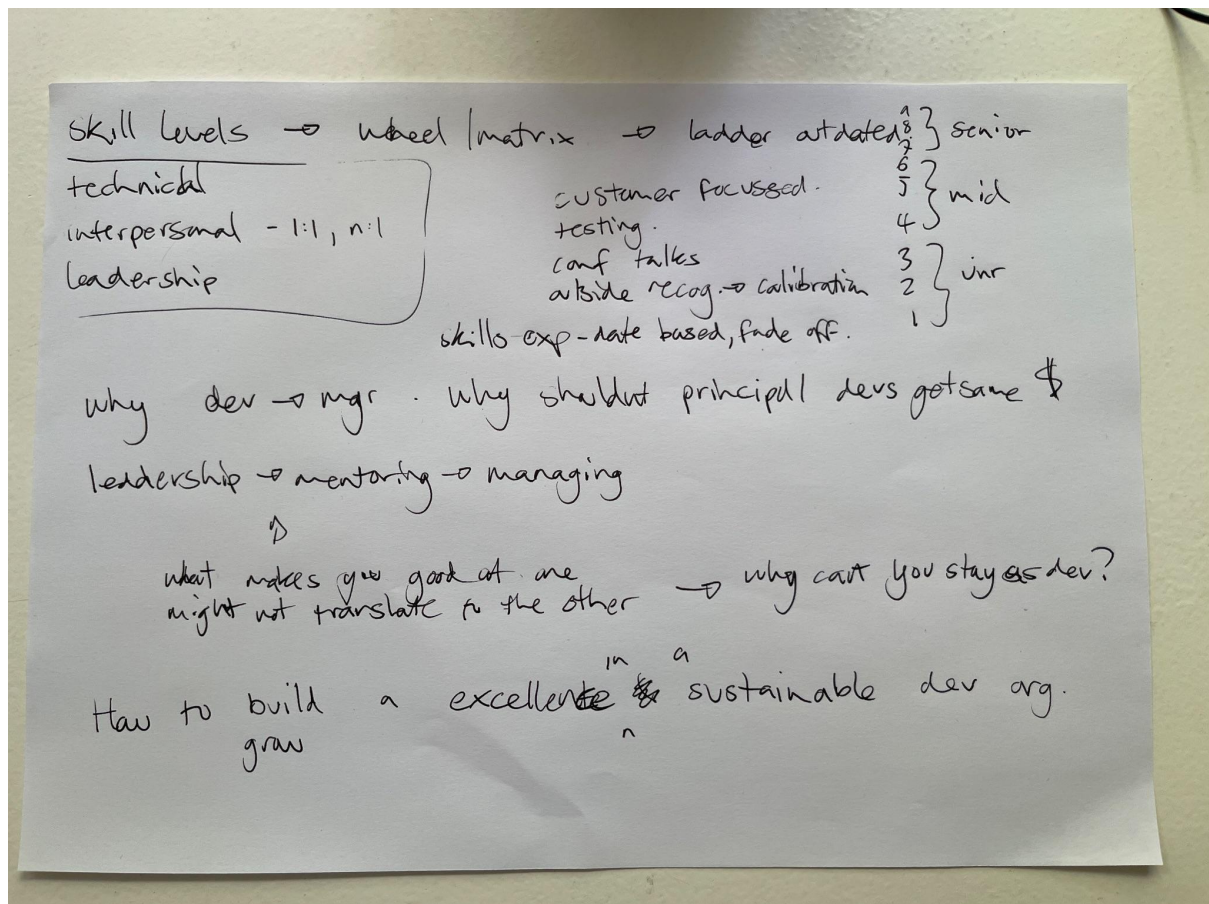 skill levels → wheel / matrix → ladder outdated
9
8 } senior
7
6
5 } mid
4
3
2 } jnr
1
technical
interpersonal - 1:1, n:1
leadership
customer focussed.
testing.
conf talks
outside recog. → calibration
skills-exp-date based, fade off.
why dev → mgr . Why shouldnt principal devs get same $
leadership → mentoring → managing
↑
what makes you good at one
might not translate to the other → why cant you stay as dev?
in a
How to build a excellence sustainable dev org.
grow n